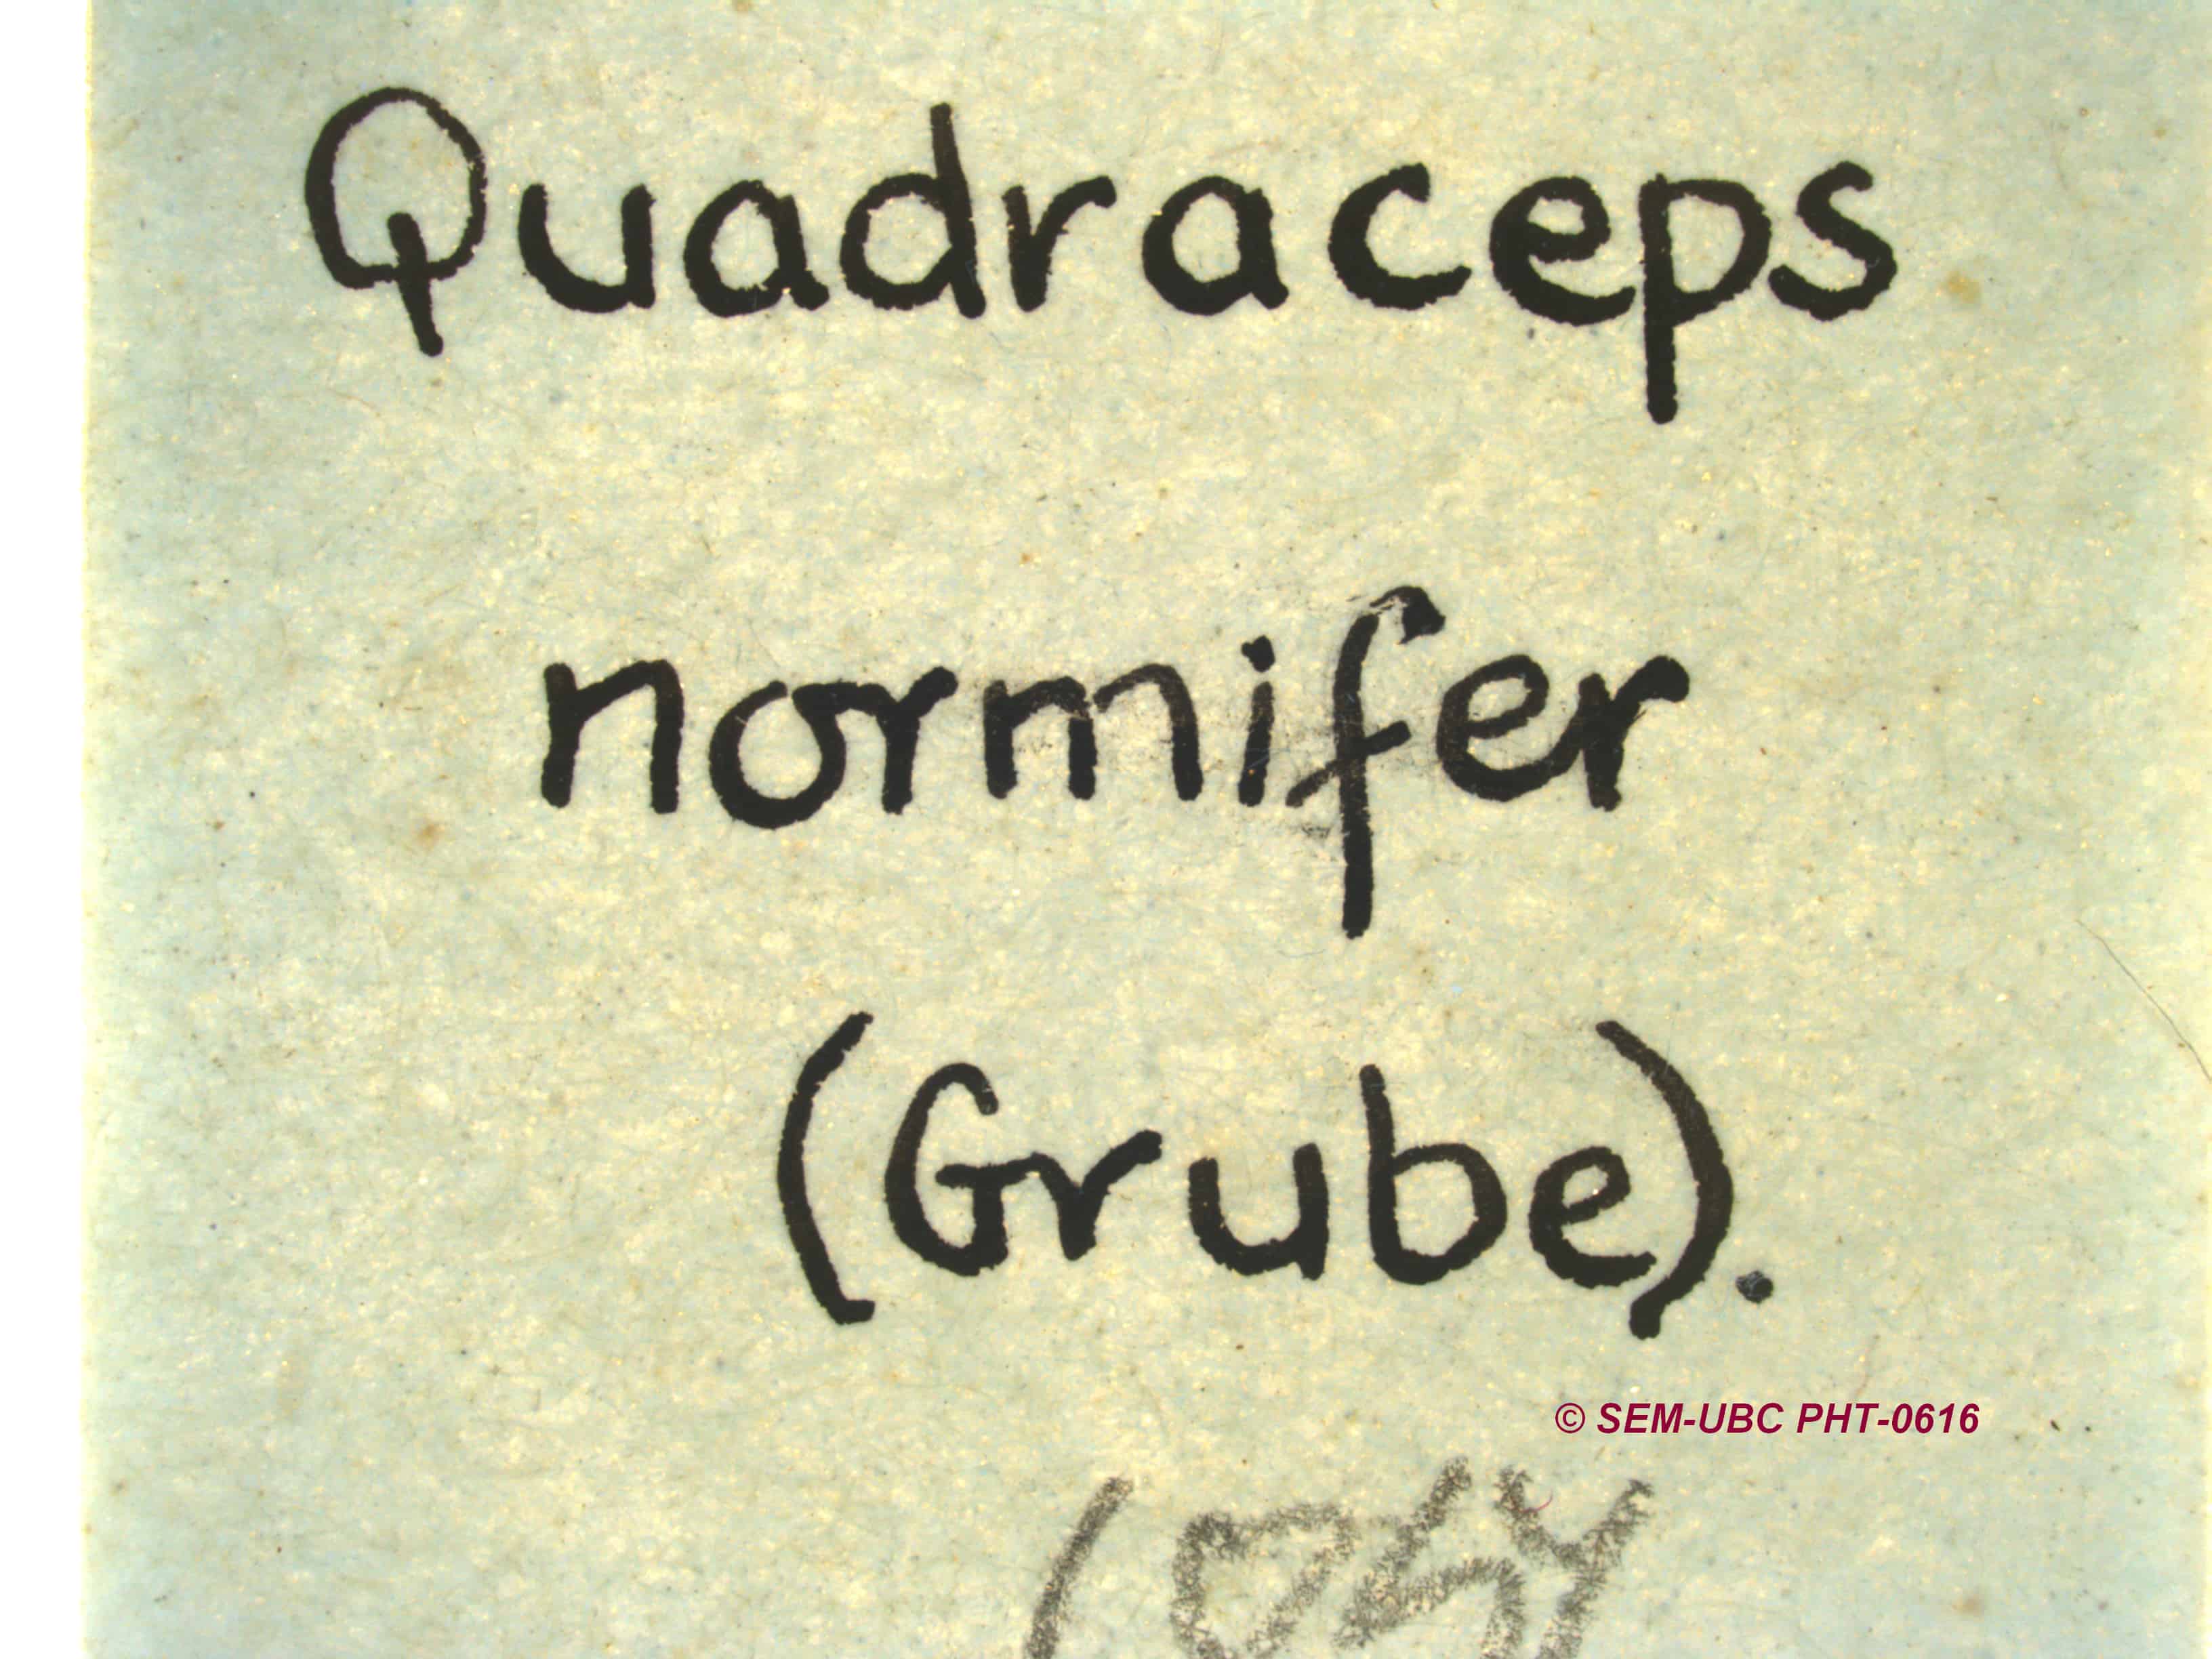 Quadraceps
normifer
(Grube).
© SEM-UBC PHT-0616